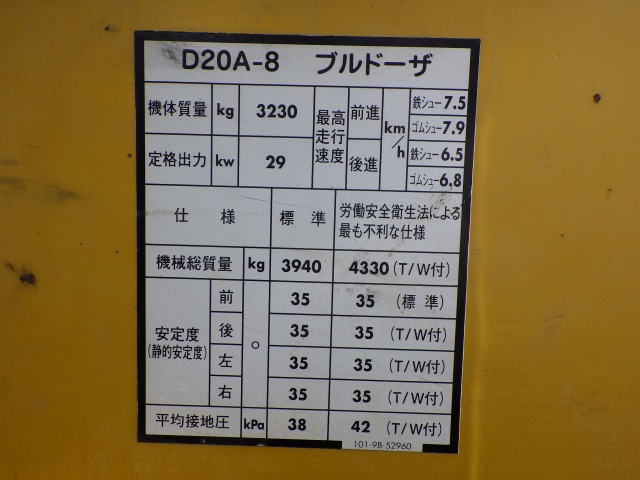 D20A-8 ブルドーザ
機体質量 kg 3230 最高走行速度 前進 km/h 鉄シュー 7.5
ゴムシュー 7.9
定格出力 kw 29 後進 鉄シュー 6.5
ゴムシュー 6.8
仕様 標準 労働安全衛生法による
最も不利な仕様
機械総質量 kg 3940 4330 (T/W付)
安定度 (静的安定度) 前 ° 35 35 (標準)
後 35 35 (T/W付)
左 35 35 (T/W付)
右 35 35 (T/W付)
平均接地圧 kPa 38 42 (T/W付)
101-98-52960